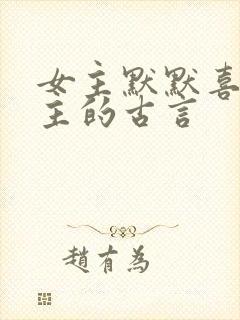 女主默默喜
主的古言
趙有為